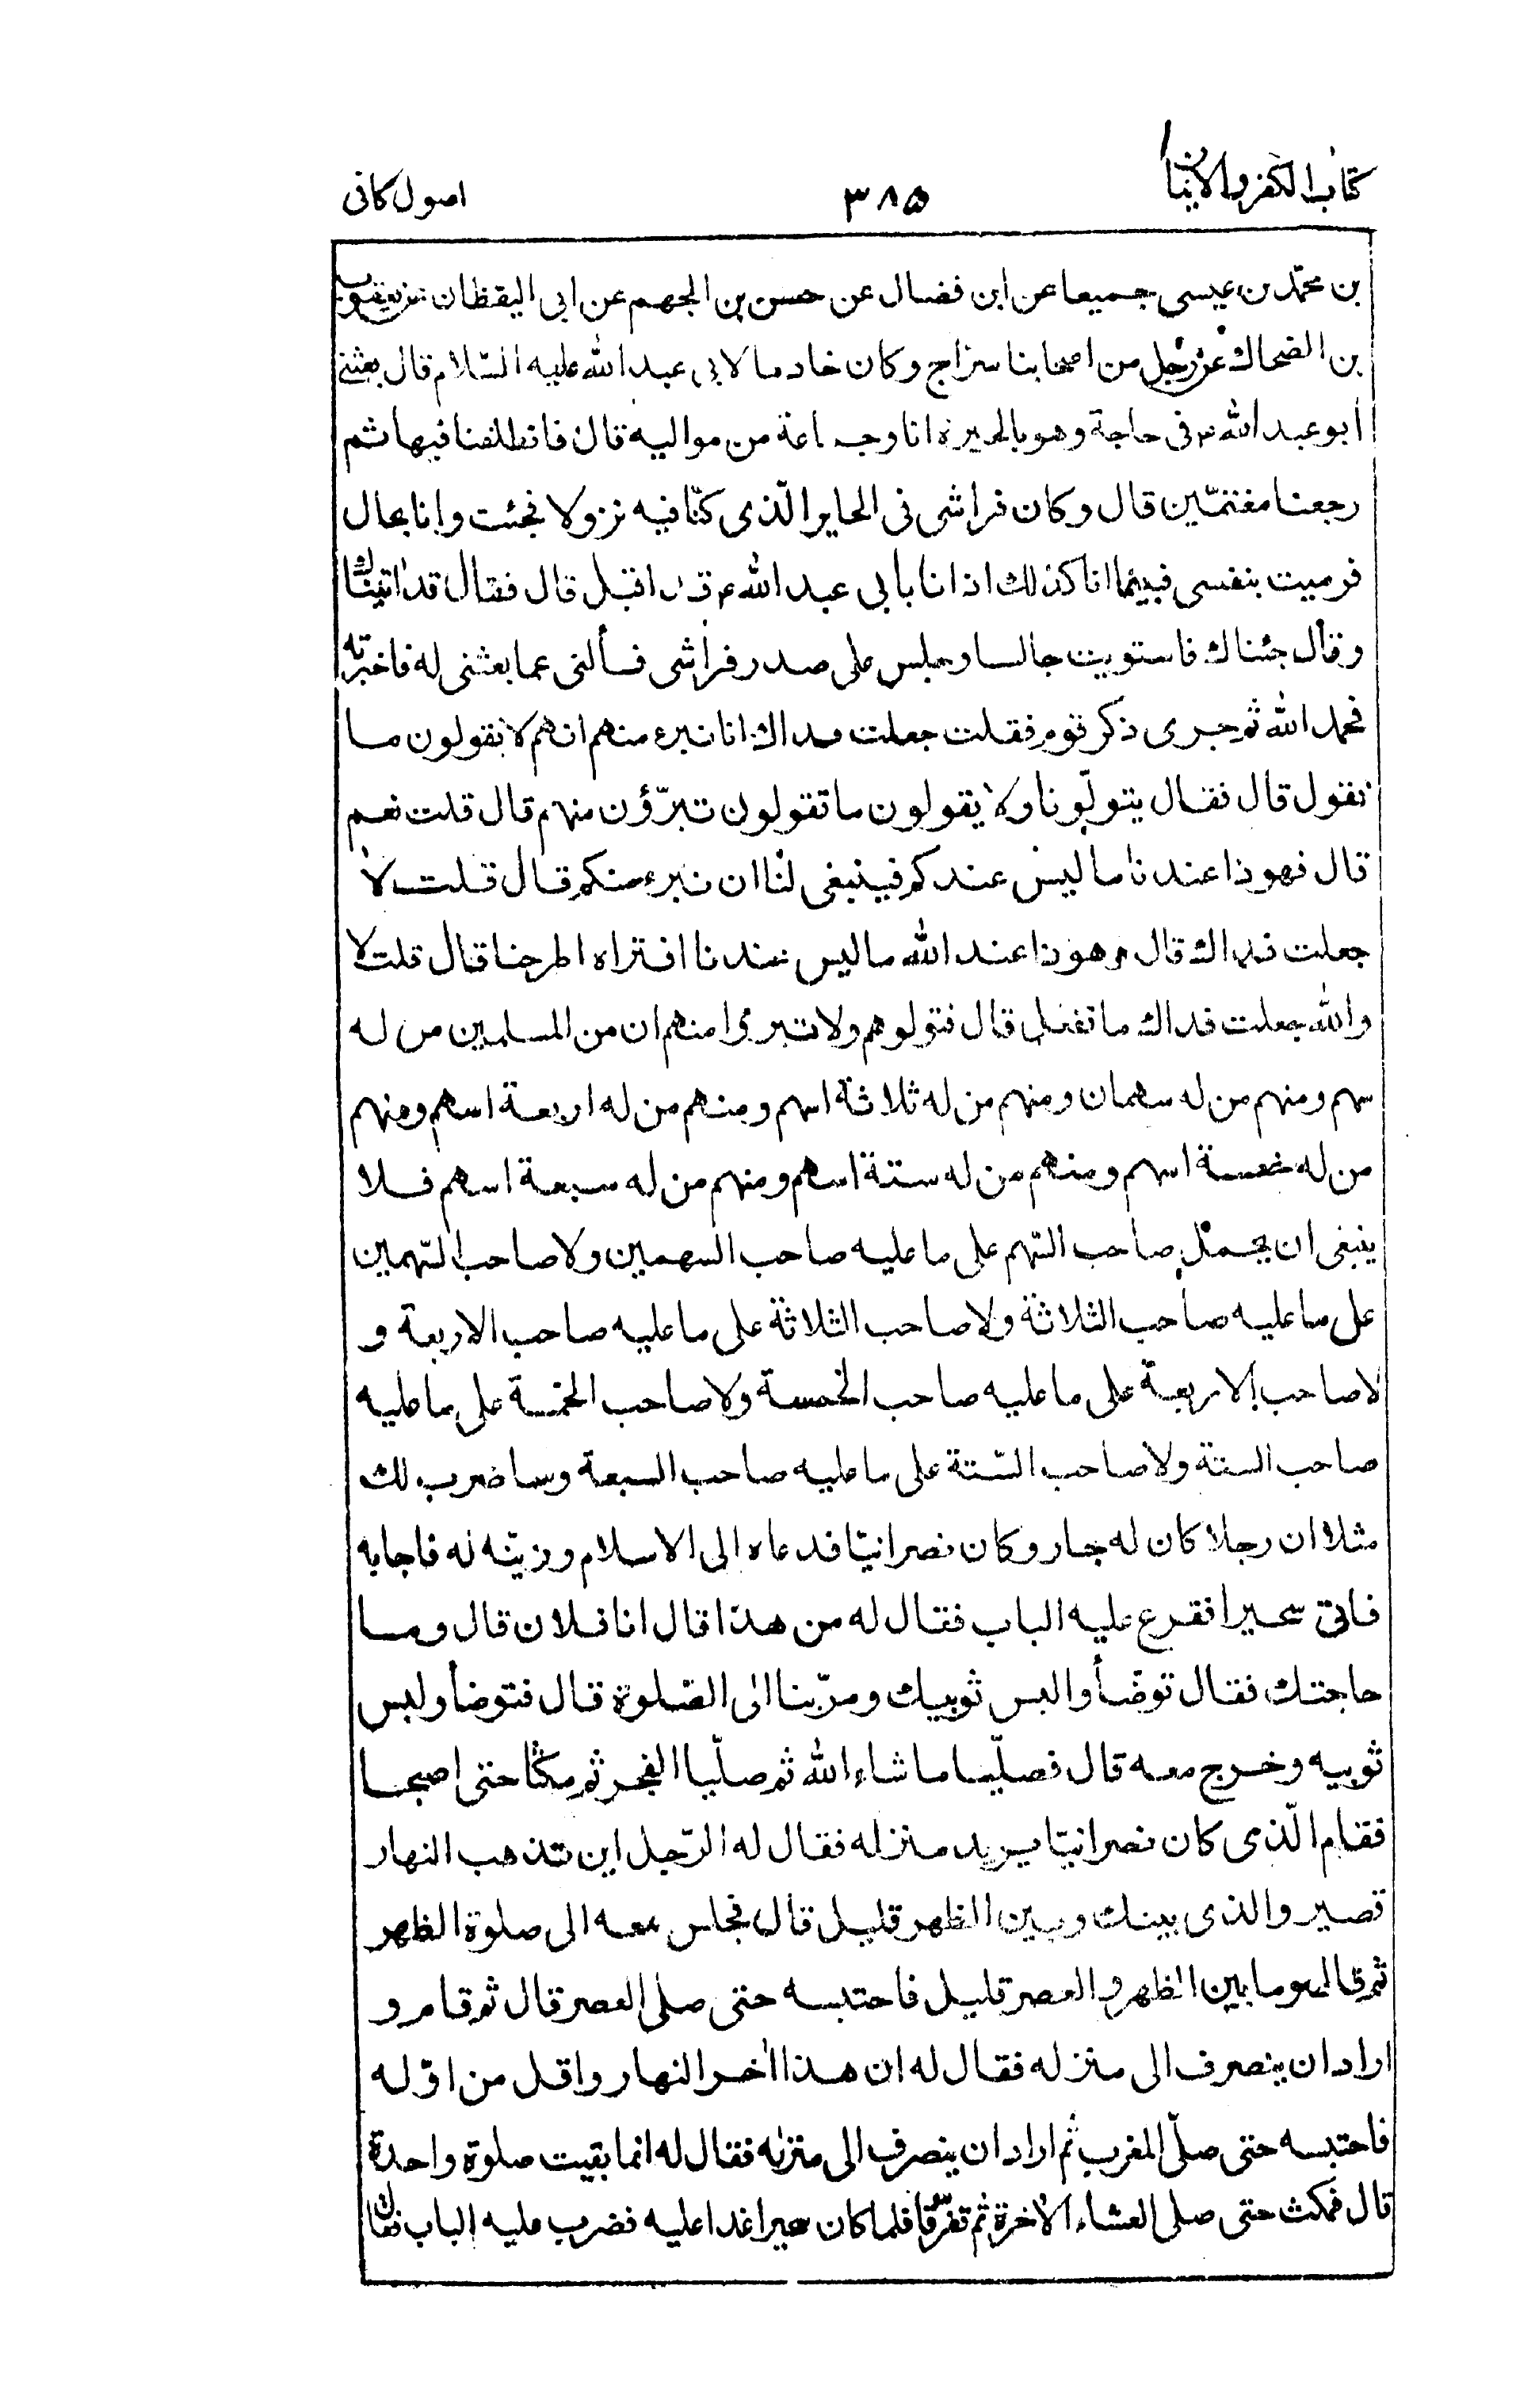 كتاب الكفر والايمان
٣٨٥
اصول كافى
بن محمّد بن عيسى جميعا عن ابن فضال عن حسن بن الجهم عن ابى اليقظان عن يعقوب
بن الضحاك عن رجل من اصحابنا سراج وكان خادما لابى عبد الله عليه السّلام قال بعثنى
ابو عبد الله ع فى حاجة وهو بالحيرة انا وجماعة من مواليه قال فانطلقنا فيها ثم
رجعنا مغتمّين قال وكان فراشى فى الحاير الّذى كنّا فيه نزولا فجئت وانا بحال
فرميت بنفسى فبينما انا كذلك اذ انا بابى عبد الله ع قد اقبل قال فقال قد اتيناك
وقال جئناك فاستويت جالسا وجلس على صدر فراشى فسألنى عما بعثنى له فاخبرته
فحمد الله ثم جرى ذكر قوم فقلت جعلت فداك انا نبرء منهم انهم لا يقولون ما
نقول قال فقال يتولّونا ولا يقولون ما تقولون تبرّؤن منهم قال قلت نعم
قال فهو ذا عندنا ما ليس عندكم فينبغى لنا ان نبرء منكم قال قلت لا
جعلت فداك قال وهو ذا عند الله ما ليس عندنا افتراه اطرحنا قال قلت لا
والله جعلت فداك ما نفعل قال فتولوهم ولا تبرءوا منهم ان من المسلمين من له
سهم ومنهم من له سهمان ومنهم من له ثلاثة اسهم ومنهم من له اربعة اسهم ومنهم
من له خمسة اسهم ومنهم من له ستة اسهم ومنهم من له سبعة اسهم فلا
ينبغى ان يحمل صاحب السّهم على ما عليه صاحب السهمين ولا صاحب السّهمين
على ما عليه صاحب الثلاثة ولا صاحب الثلاثة على ما عليه صاحب الاربعة و
لا صاحب الاربعة على ما عليه صاحب الخمسة ولا صاحب الخمسة على ما عليه
صاحب الستة ولا صاحب السّتة على ما عليه صاحب السبعة وساضرب لك
مثلا ان رجلا كان له جار وكان نصرانيّا فدعاه الى الاسلام وزيّنه له فاجابه
فاتى سحيرا فقرع عليه الباب فقال له من هذا قال انا فلان قال وما
حاجتك فقال توضّأ والبس ثوبيك ومرّ بنا الى الصّلوة قال فتوضأ ولبس
ثوبيه وخرج معه قال فصلّيا ما شاء الله ثم صلّيا الفجر ثم مكثا حتى اصبحا
فقام الّذى كان نصرانيّا يريد منزله فقال له الرّجل اين تذهب النهار
قصير والذى بينك وبين الظهر قليل قال فجلس معه الى صلوة الظهر
ثم قال وما بين الظهر والعصر قليل فاحتبسه حتى صلى العصر قال ثم قام و
اراد ان ينصرف الى منزله فقال له ان هذا اخر النهار واقل من اوّله
فاحتبسه حتى صلّى المغرب ثم اراد ان ينصرف الى منزله فقال له انما بقيت صلوة واحدة
قال فمكث حتى صلى العشاء الاخرة ثم تفرّقا فلما كان سحيرا غدا عليه فضرب عليه الباب فقال